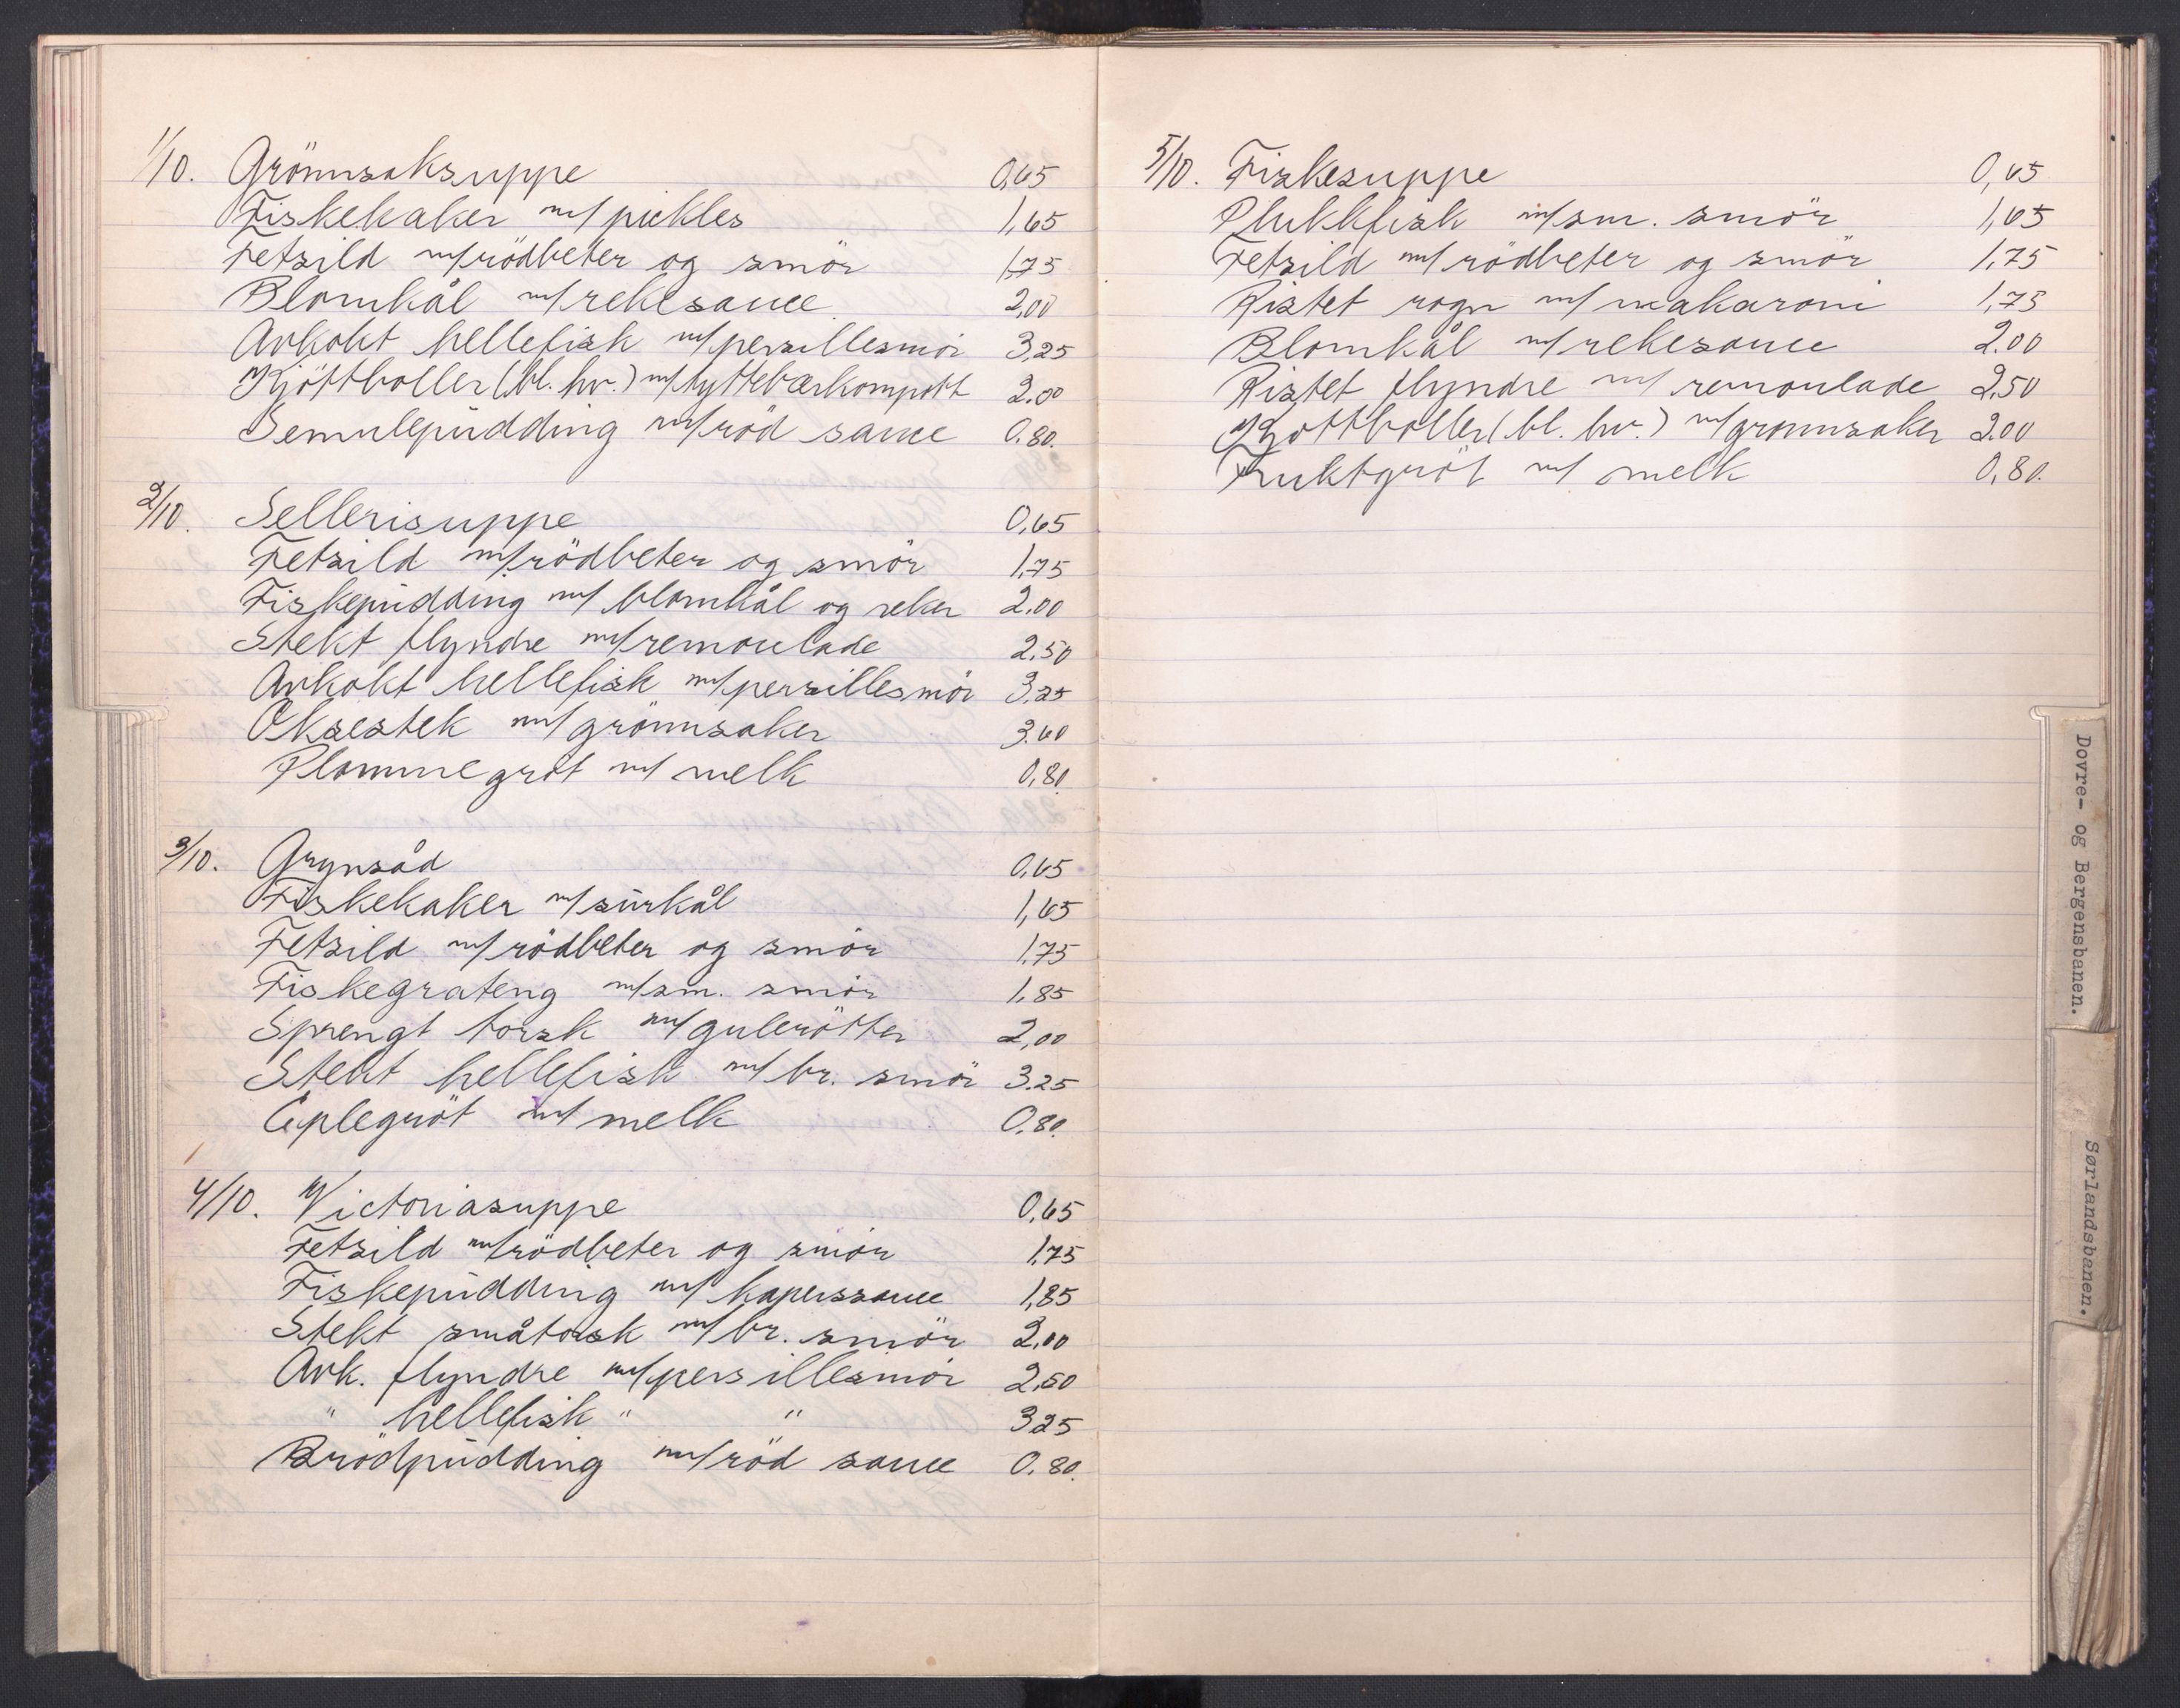 1/10. Grönnsaksuppe 0,65
Fiskekaker m/ pickles 1,65
Fetsild m/rödbeter og smör 1,75
Blomkål m/rekesauce 2,00
Avkokt hellefisk m/persillesmör 3,25
Kjöttboller (bl. hv.) m/tyttebærkompott 2.00
Semulepudding m/röd sauce 0.80.
2/10. Sellerisuppe 0,65
Fetsild m/rödbeter og smör 1,75
Fiskepudding m/ blomkål og reker 2.00
Stekt flyndre m/remoulade 2,50
Avkokt hellefisk m/persillesmör 3,25
Oksestek m/ grönnsaker 3.60
Plommegröt m/ melk 0,80.
3/10. Grynsåd 0,65
Fiskekaker m/surkål 1,65
Fetsild m/rödbeter og smör 1.75
Fiskegrateng m/sm. smör 1,85
Sprengt torsk m/gulerötter 2,00
Stekt hellefisk m/ br. smör 3.25
Eplegröt m/ melk 0.80.
4/10. Victoriasuppe 0,65
Fetsild m/rödbeter og smör 1,75
Fiskepudding m/ kaperssauce 1,85
Stekt småtorsk m/br. smör 2,00
Avk. flyndre m/persillesmör 2,50
" hellefisk " " 325
Brödpudding m/röd sauce 0.80.
5/10. Fiskesuppe 0,65
Plukkfisk m/sm. smör 1,65
Fetsild m/ rödbeter og smör 1,75
Ristet rogn m/ makaroni 1,75
Blomkål m/rekesauce 2.00
Ristet flyndre m/ remoulade 2,50
Kjöttboller (bl. hv.) m/grønnsaker 2.00
Fruktgröt m/ melk 0,80.
Dovre- og Bergensbanen.
Sørlandsbanen.